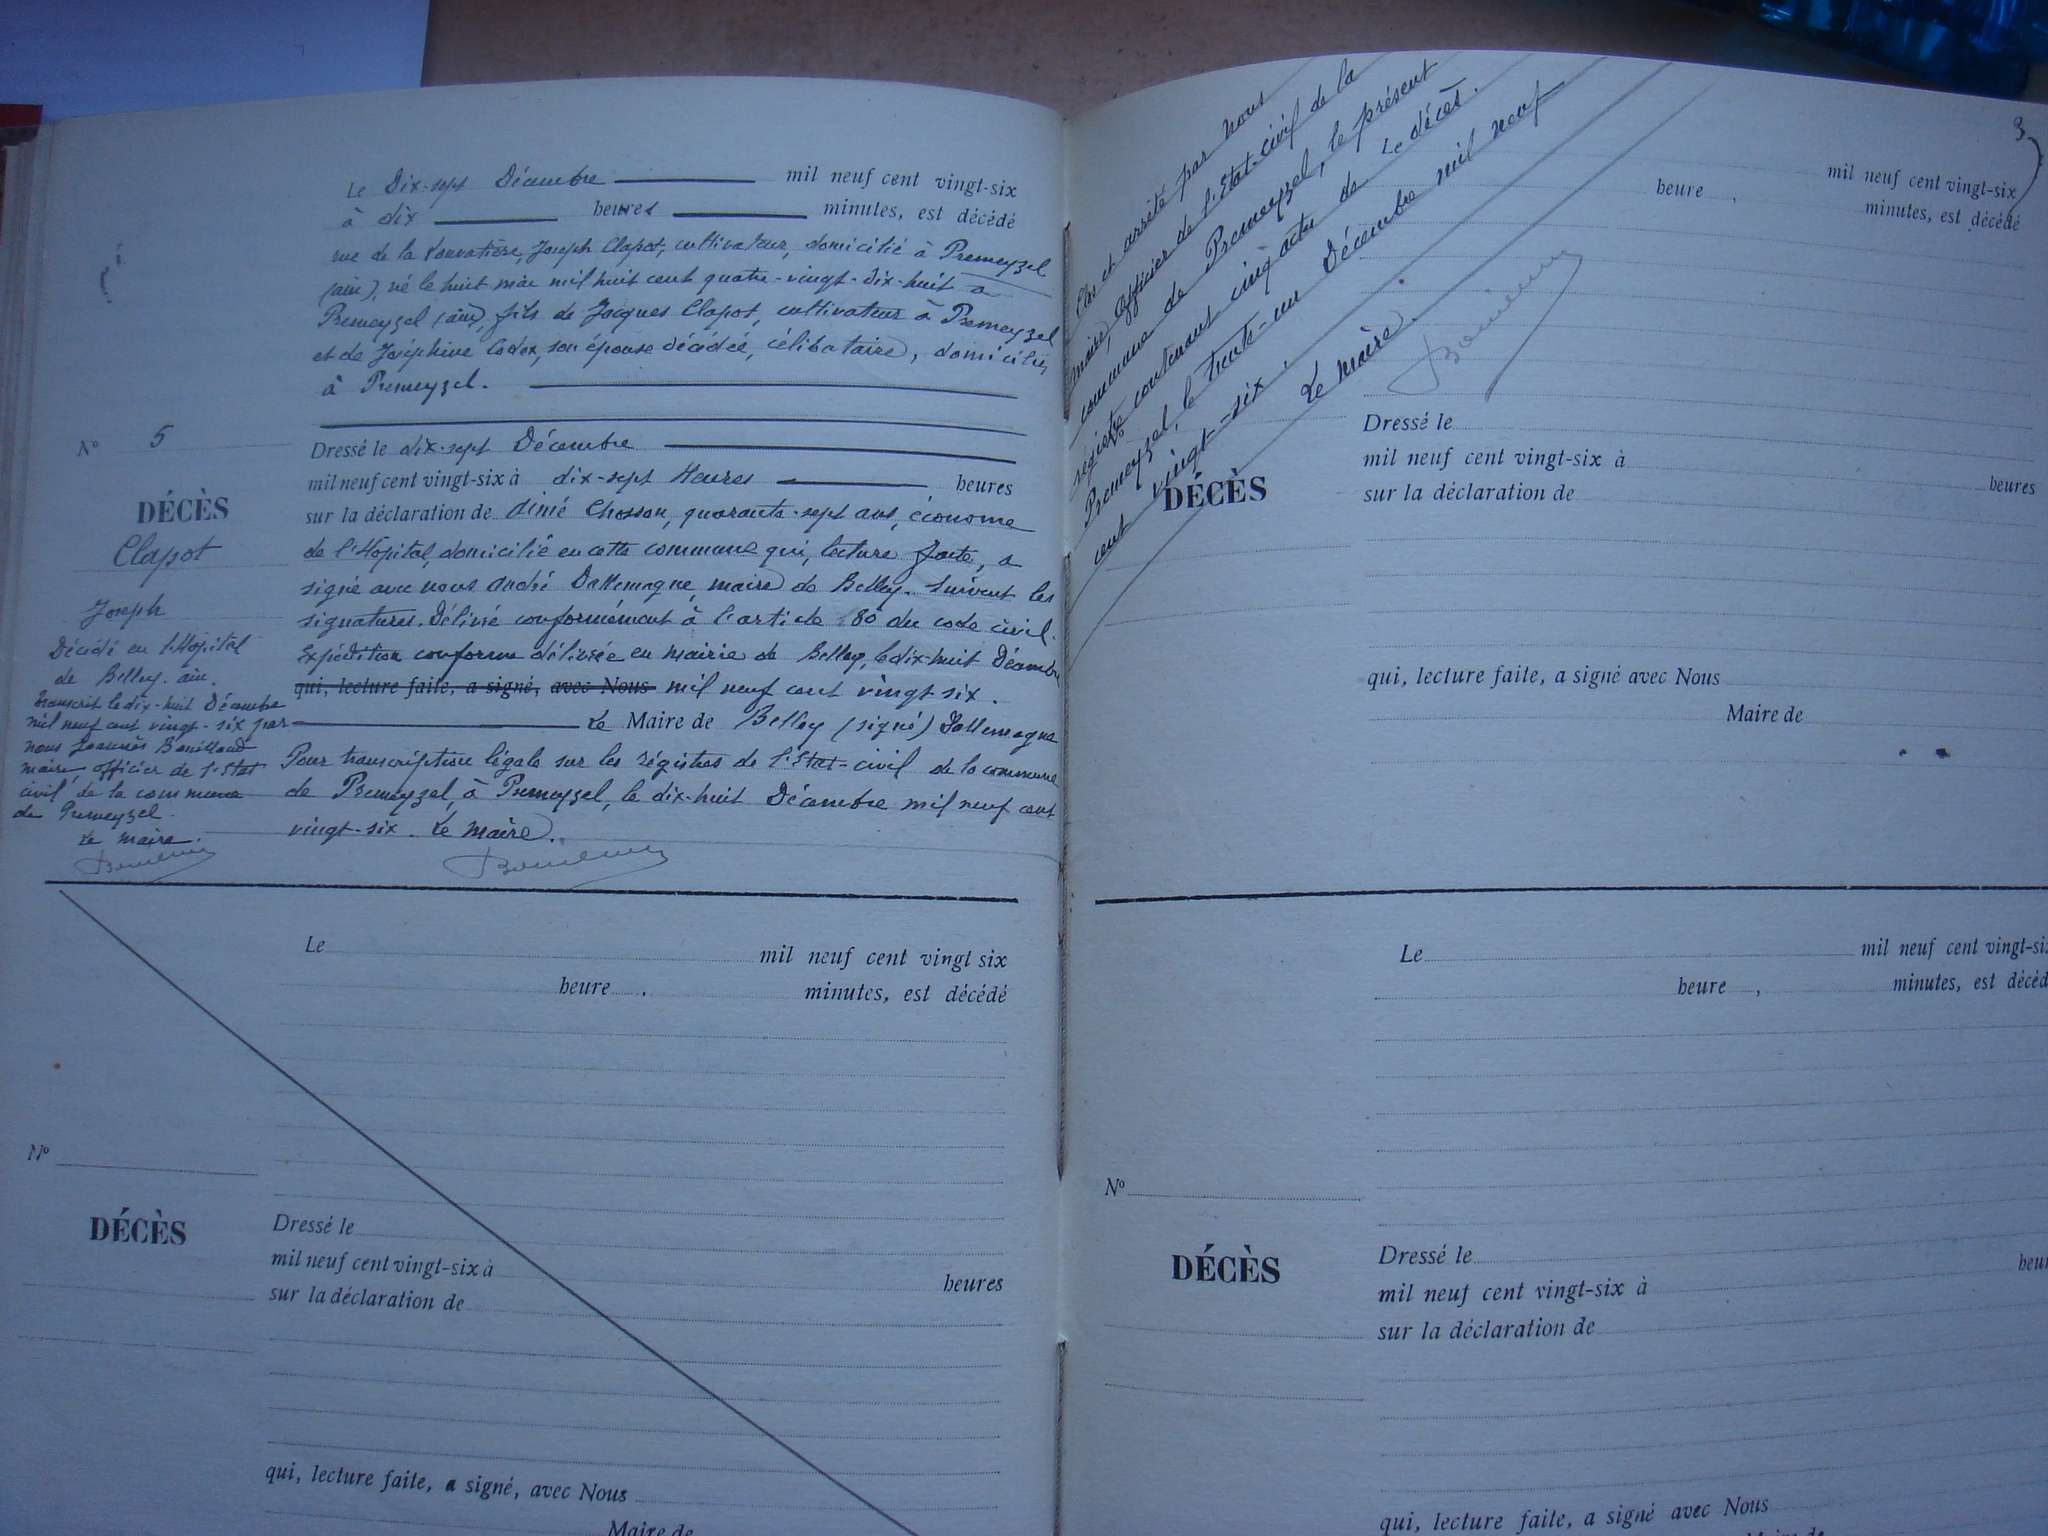 Le Dix-sept Décembre mil neuf cent vingt-six
à dix heures minutes, est décédé
rue de la Joseph Clapot, cultivateur, domicilié à Premeyzel
(ain), né le huit mai mil huit cent quatre-vingt-dix-huit a
Premeyzel (ain), fils de Jacques Clapot, cultivateur à Premeyzel
et de Joséphine son épouse décédée, célibataire, domicilié
à Premeyzel.
N° 5
DÉCÈS
Clapot
Joseph
Décédé en l'Hôpital
de Belley. ain.
Transcrit le dix-huit Décembre
mil neuf cent vingt-six par
nous Joannès
maire, officier de l'Etat
civil de la commune
de Premeyzel.
Le maire.
Dressé le dix-sept Décembre
mil neuf cent vingt-six à dix-sept Heures heures
sur la déclaration de Aimé Chosson, quarante-sept ans, économe
de l'Hopital, domicilié en cette commune qui, lecture faite, a
signé avec nous André Dallemagne, maire de Belley. Suivent les
signatures. Délivré conformément à l'article 80 du code civil.
Expédition conforme délivrée en mairie de Belley, le dix-huit Décembre
qui, lecture faite, a signé, avec Nous mil neuf cent vingt-six.
Le Maire de Belley (signé) Dallemagne
Pour transcription légale sur les régistres de l'Etat-civil de la commune
de Premeyzel, à Premeyzel, le dix-huit Décembre mil neuf cent
vingt-six. Le maire.
Le mil neuf cent vingt six
heure minutes, est décédé
N°
DÉCÈS
Dressé le
mil neuf cent vingt-six à heures
sur la déclaration de
qui, lecture faite, a signé, avec Nous
Maire de
3
Clos et arrêté par nous
maire, Officier de l'Etat-civil de la
commune de Premeyzel, le présent
registre contenant cinq actes de décès.
Premeyzel, le trente-un Décembre mil neuf
cent vingt-six.
Le Maire.
Le mil neuf cent vingt-six
heure minutes, est décédé
DÉCÈS
Dressé le
mil neuf cent vingt-six à heures
sur la déclaration de
qui, lecture faite, a signé avec Nous
Maire de
Le mil neuf cent vingt-six
heure minutes, est décéd
N°
DÉCÈS
Dressé le
mil neuf cent vingt-six à heu
sur la déclaration de
qui, lecture faite, a signé avec Nous
Maire de